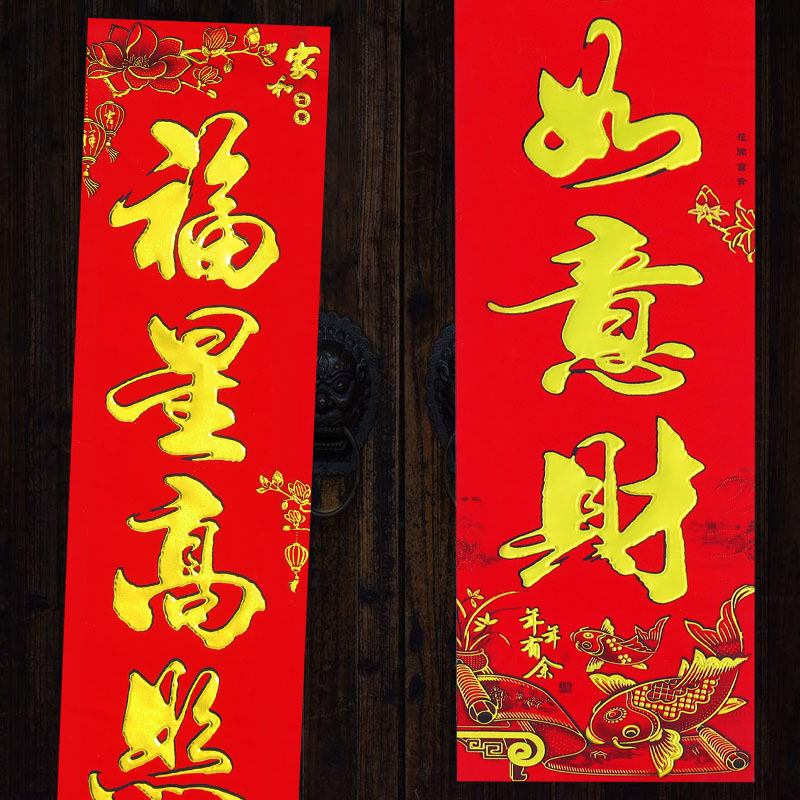 家和
吉
祥
福星高照
花開富貴
如意財
年年有余